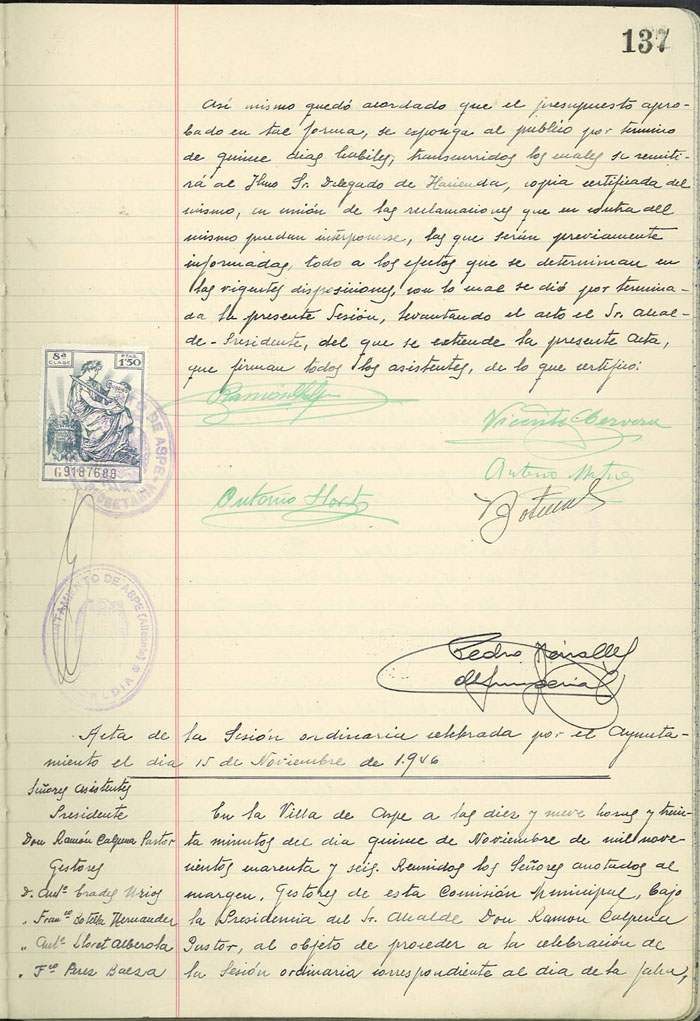 137
Así mismo quedó acordado que el presupuesto apro-
bado en tal forma, se exponga al público por termino
de quince dias habiles, transcurridos los cuales se remiti-
rá al Ilmo Sr. Delegado de Hacienda, copia certificada del
mismo, en unión de las reclamaciones que en contra del
mismo puedan interponerse, las que serán previamente
informadas, todo a los efectos que se determinan en
las vigentes disposiciones, con lo cual se dió por termina-
da la presente Sesión, levantando el acto el Sr. Alcal-
de-Presidente, del que se extiende la presente Acta,
que firman todos los asistentes, de lo que certifico:
8ª CLASE
PTAS. 1'50
G9187688
DE ASPE
Ramón
Vicente Cervera
Antonio Lloret
Arturo
AYUNTAMIENTO DE ASPE (Alicante)
ALCALDIA
Pedro
Acta de la Sesión ordinaria celebrada por el Ayunta-
miento el dia 15 de Noviembre de 1.946
Señores asistentes
Presidente
Don Ramón Calpena Pastor
Gestores
D. Antº Cradés Urios
" Franco Botella Hernandez
" Antº Lloret Alberola
" Fco Perez Baeza
En la Villa de Aspe a las diez y nueve horas y trein-
ta minutos del dia quince de Noviembre de mil nove-
cientos cuarenta y seis. Reunidos los Señores anotados al
margen, Gestores de esta Comisión Municipal, bajo
la Presidencia del Sr. Alcalde Don Ramon Calpena
Pastor, al objeto de proceder a la celebración de
la Sesión ordinaria correspondiente al dia de la fecha,